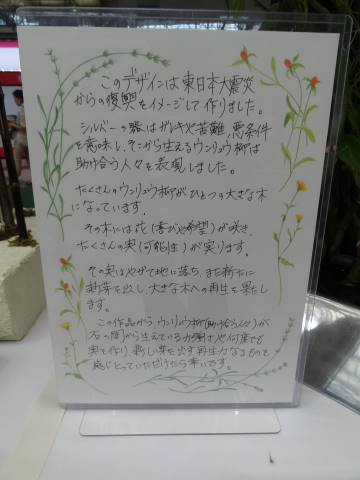 このデザインは東日本大震災
からの復興をイメージして作りました。
シルバーの器はガレキや苦難、悪条件
を意味し、そこから生えるウンリュウ柳は
助け合う人々を表現しました。
たくさんのウンリュウ柳がひとつの大きな木
になっています。
その木には花(喜びや希望)が咲き、
たくさんの実(可能性)が実ります。
その実はやがて地に落ち、また新たに
新芽を出し、大きな木への再生を果たし
ます。
この作品から ウンリュウ柳(助け合う人々)が
石の間から生えている力強さや何度でも
実を作り 新しい芽を出す再生力なるものを
感じとっていただけたら幸いです。